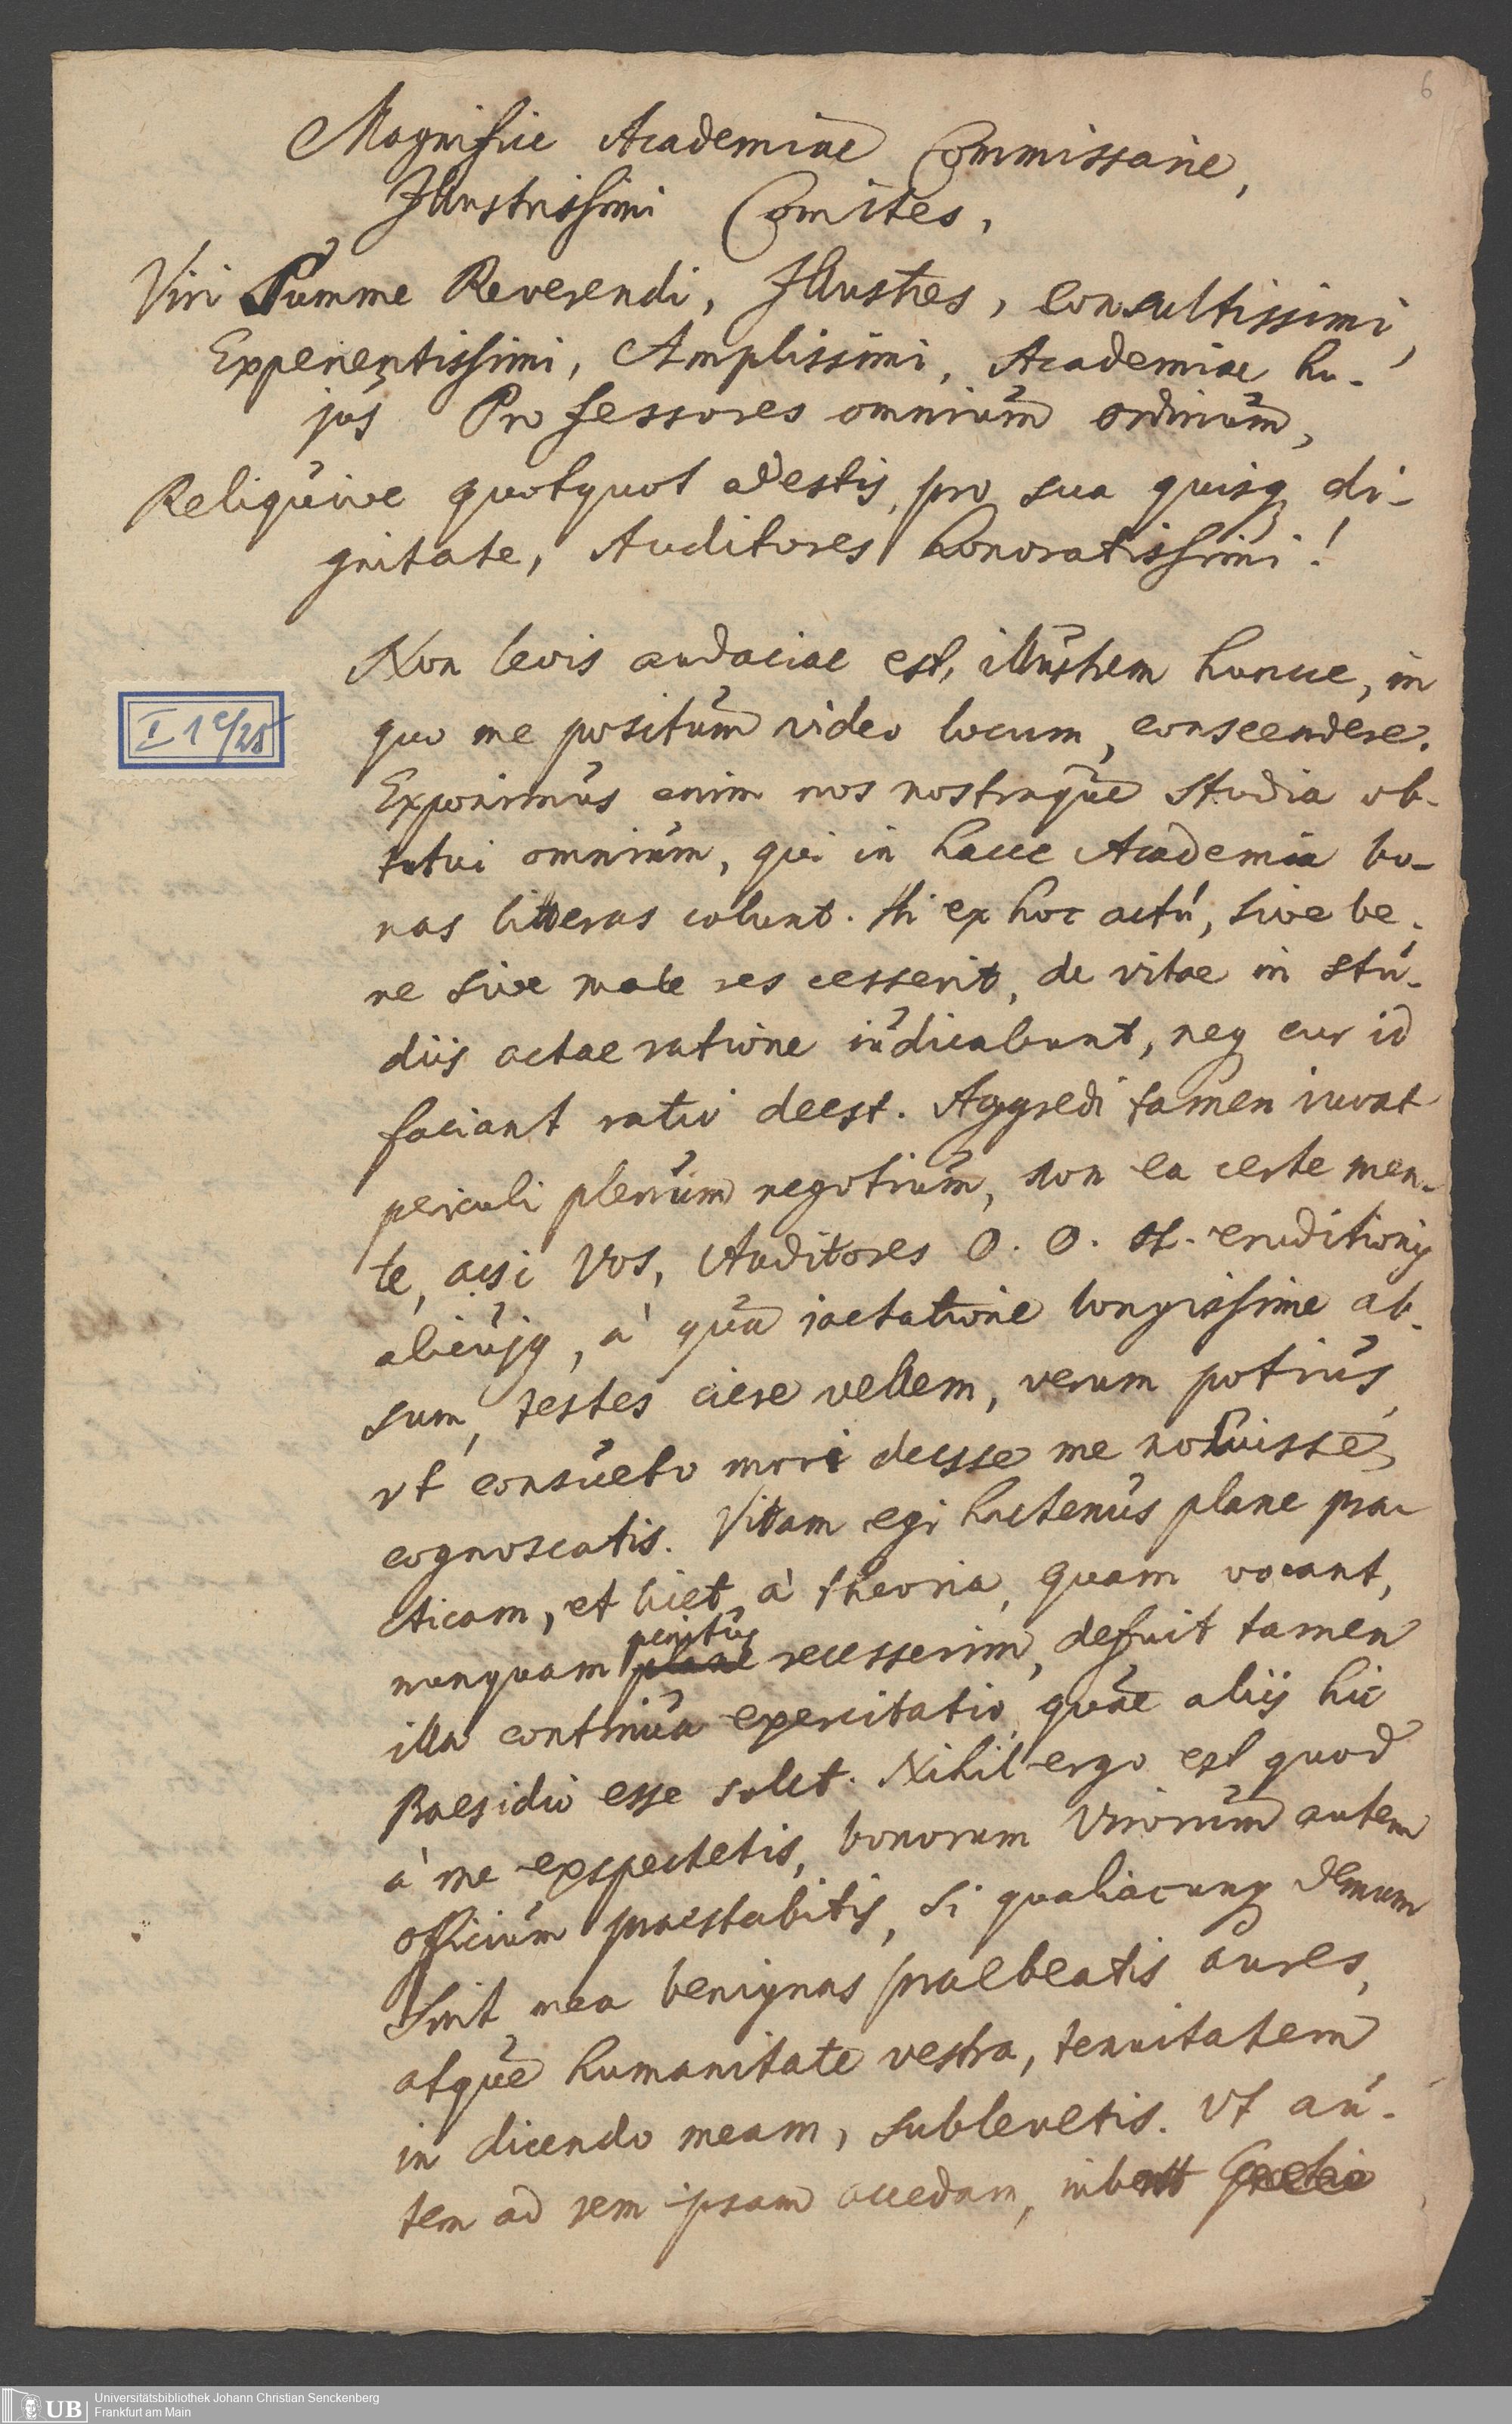 6
Magnifice Academiae Commissarie,
Illustrissimi Comites,
Viri Summe Reverendi, Illustres, consultissimi,
Experientissimi, Amplissimi, Academiae hu-
jus Professores omnium ordinum,
Reliquive quotquot adestis, pro sua quisq di-
gnitate, Auditores honoratissimi!
Non levis audaciae est, illustrem huncce, in
quo me positum video locum, conscendere.
Exponimus enim nos nostraque studia ob-
tutui omnium, qui in hacce Academia bo-
nas litteras colunt. Hi ex hoc actu, sive be-
ne sive male res cesserit, de vitae in stu-
diis actae ratione iudicabunt, neq cur id
faciant ratio deest. Aggredi tamen iuvat
periculi plenum negotium, non ea certe men-
te, acsi vos, Auditores O. O. H. eruditionis
alicujq, à qua jactatione longissime ab-
sum, testes ciere vellem, verum potius,
vt consueto mori deesse me noluisse
cognoscatis. Vitam egi hactenus plane pra-
cticam, et licet à theoria, quam vocant,
penitus
nunquam plane recesserim, defuit tamen
illa continua exercitatio, quae aliis hic
Praesidio esse solet. Nihil ergo est quod
à me exspectetis, bonorum Virorum autem
officium praestabitis, si qualiacunq demum
sint mea benignas praebeatis aures,
atque humanitate vestra, tenuitatem
in dicendo meam, sublevetis. Vt au-
tem ad rem ipsam accedam, iubent
I 1 c/28
UB
Universitätsbibliothek Johann Christian Senckenberg
Frankfurt am Main